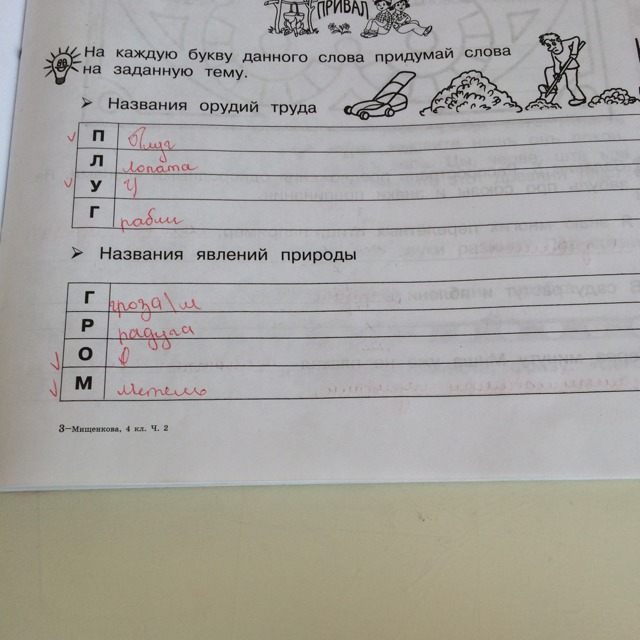 ПРИВАЛ
На каждую букву данного слова придумай слова
на заданную тему.
Названия орудий труда
П Плуг
Л лопата
У У
Г грабли
Названия явлений природы
Г гроза\м
Р радуга
О О
М Метель
3—Мищенкова, 4 кл. Ч. 2